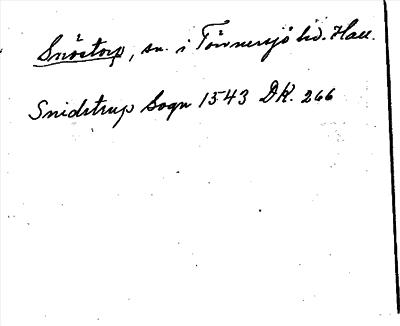 Snöstorp, sn. i Tönnersjö hd. Hall.
Snidstrup Sogn 1543 DK. 266